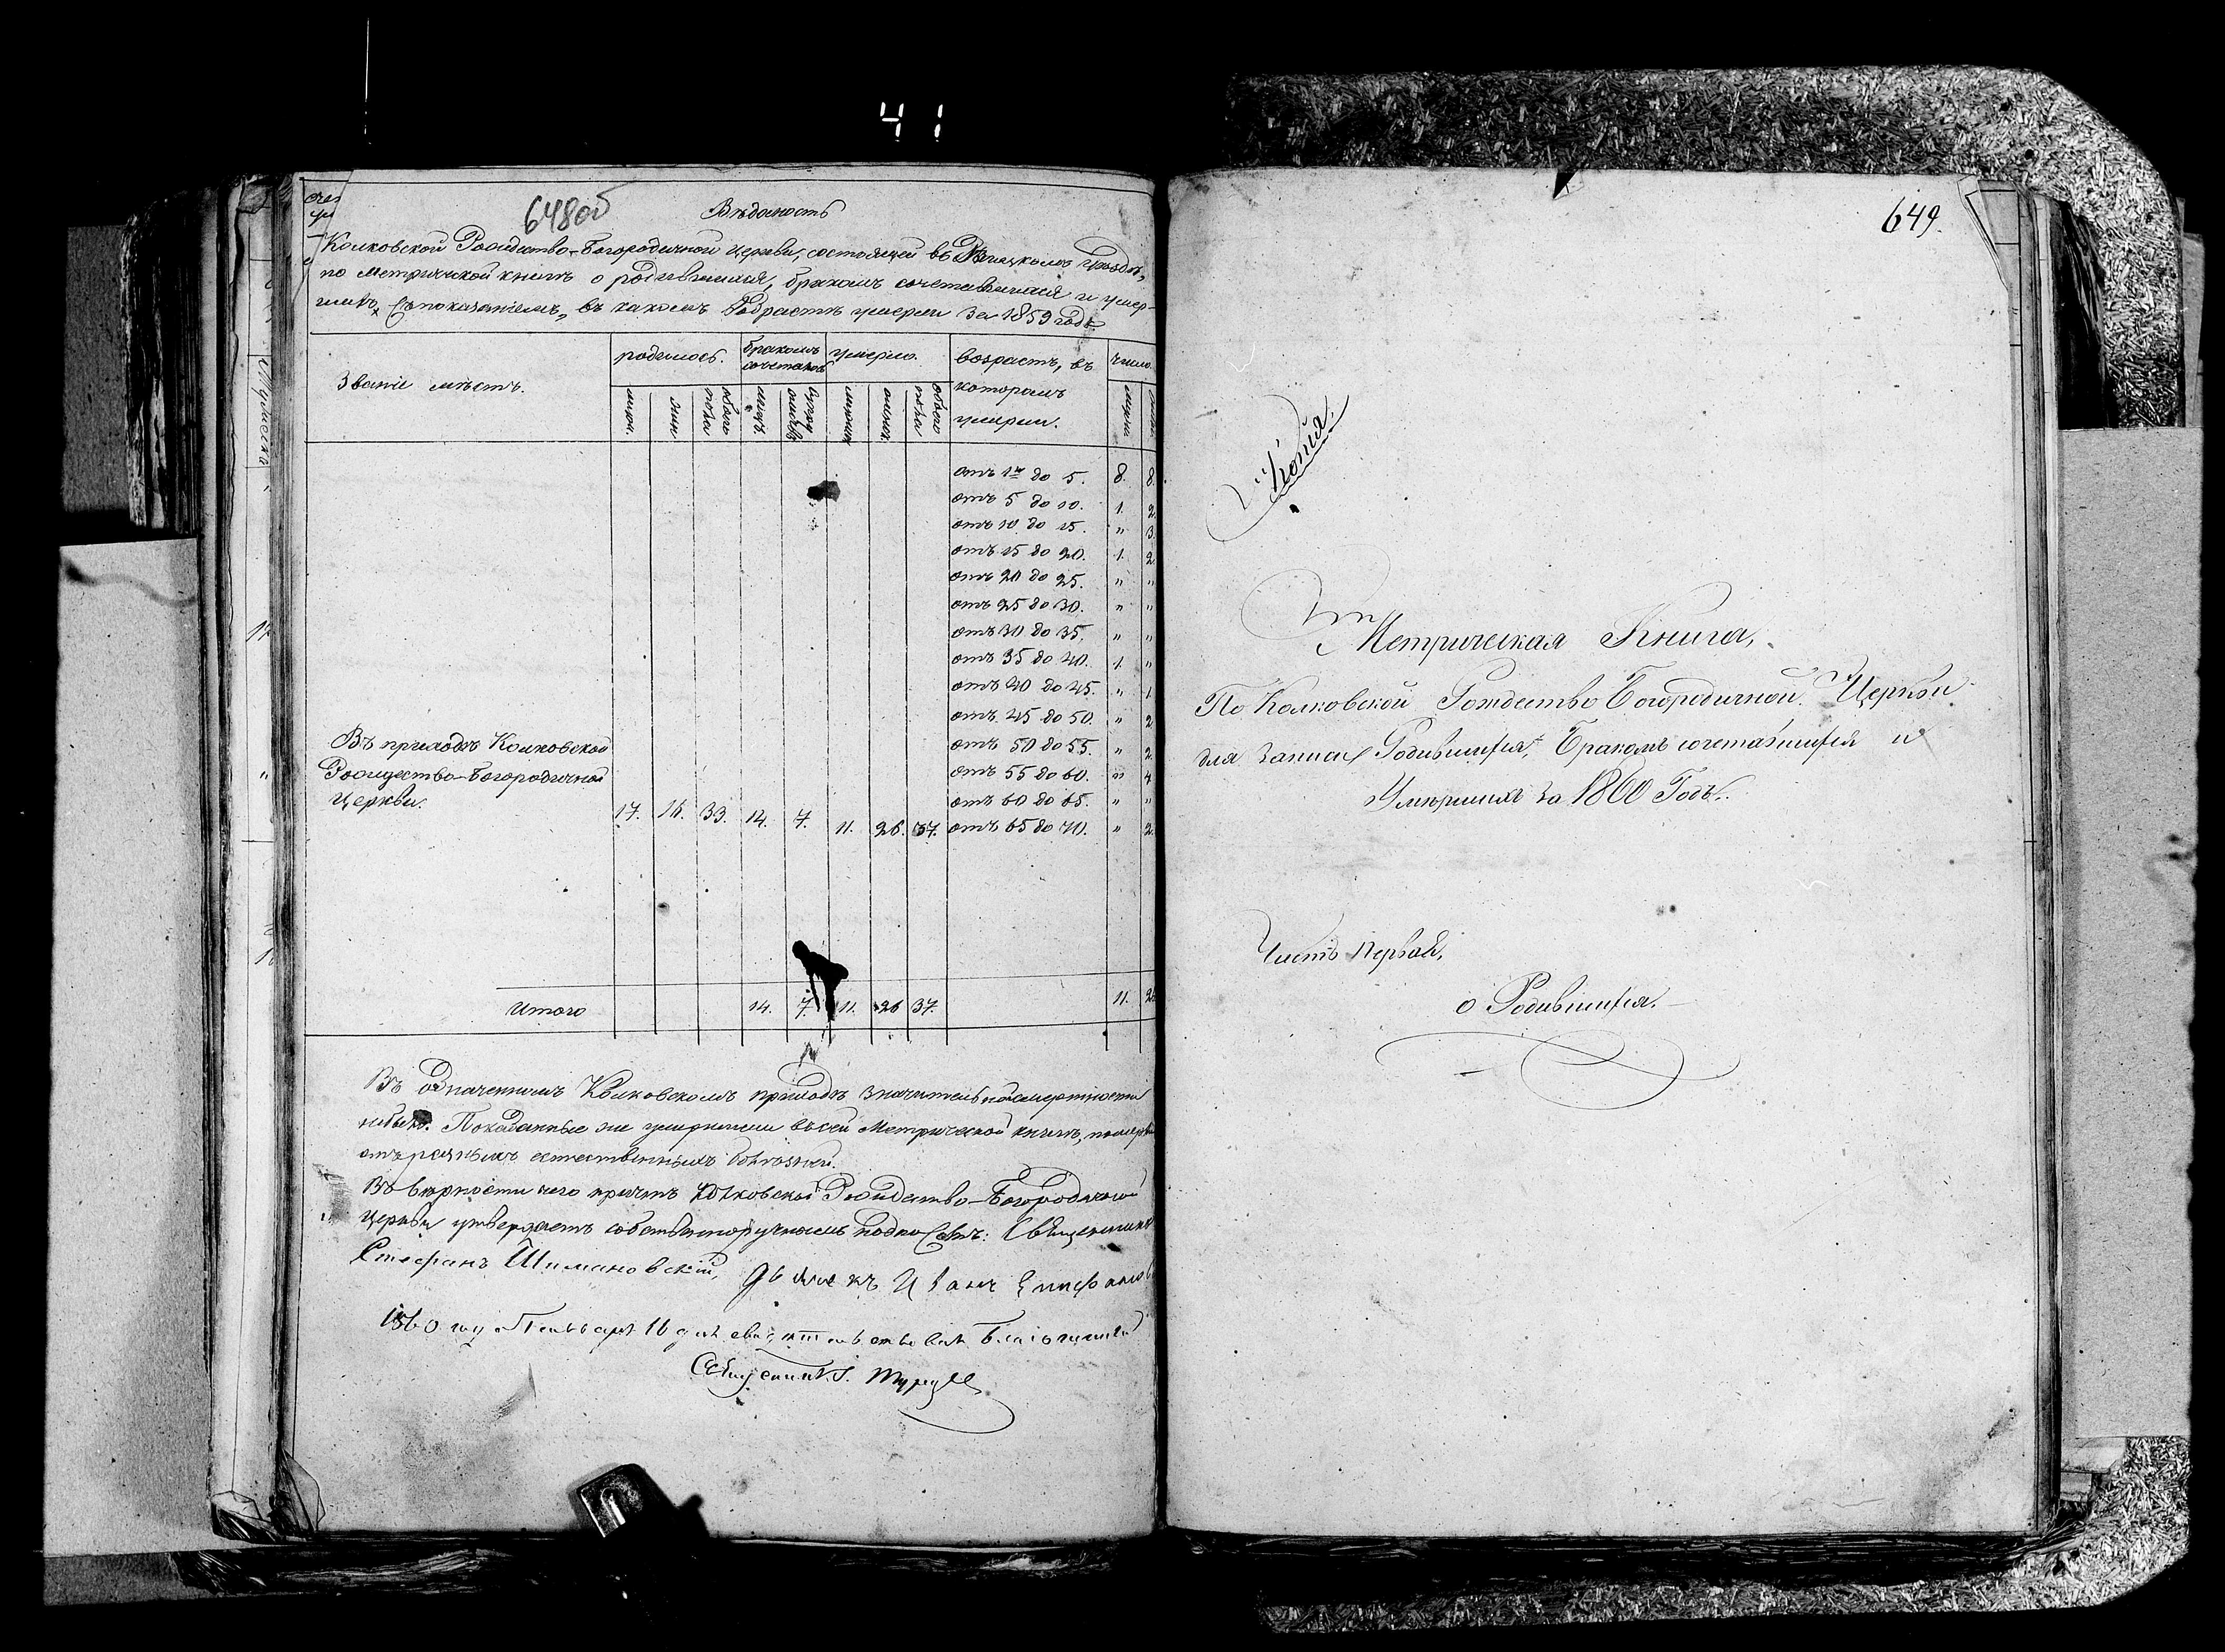 41
648об
Вѣдомость
Колковской Рождество-Богородичной церкви, состоящей въ Рѣчицкомъ уѣздѣ,
по метрической книгѣ о родившихся, бракомъ сочетавшихся и умер-
шихъ, съ показаніемъ, въ какомъ возрастѣ умерли за 1859 годъ
Званіе мѣстъ. родилось. бракомъ сочетано умерло. возрастъ, въ которомъ умерли. число.
мужч. жен обоего пола обоего пола
отъ 1го до 5. 8. 8.
отъ 5 до 10. 1. 2.
отъ 10 до 15. " 3.
отъ 15 до 20. 1. 2
отъ 20 до 25. " "
отъ 25 до 30. " "
отъ 30 до 35. " "
отъ 35 до 40. 1. "
отъ 40 до 45. " 1.
отъ 45 до 50. " 2
отъ 50 до 55. " 2.
отъ 55 до 60. " 4
отъ 60 до 65. " "
отъ 65 до 70. " 2.
Въ приходѣ Колковской
Рождество-Богородичной
Церкви.
17. 16. 33. 14. 7. 11. 26. 37.
Итого 14. 7. 11. 26 37. 11. 26
Въ означенномъ Колковскомъ приходѣ значительной смертности
небыло. Показанные же умершими въ сей Метрической книгѣ, померли
отъ разныхъ естественныхъ болѣзней.
Въ вѣрности чего причтъ Колковской Рождество-Богородичной
Церкви утверждаетъ собственноручнымъ подписомъ: Священникъ
Стефанъ Шимановскій, Дьячекъ Иванъ
1860 года Генваря 16 дня свидѣтельствовалъ Благочинный
Священникъ
649.
Копія.
Метрическая Книга,
По Колковской Рождество Богородичной Церкви
для записи Родившихся, Бракомъ сочетавшихся и
Умершихъ за 1860 Годъ.
Часть первая,
о Родившихся.